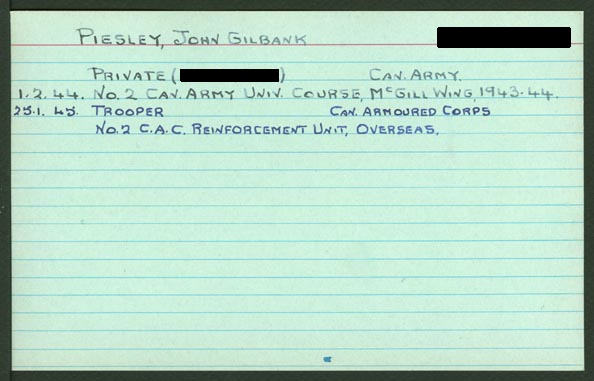 PIESLEY, JOHN GILBANK
PRIVATE ( ) CAN. ARMY.
1.2.44. NO. 2 CAN. ARMY UNIV. COURSE, McGILL WING, 1943-44.
25.1.45. TROOPER CAN. ARMOURED CORPS
NO. 2 C.A.C. REINFORCEMENT UNIT, OVERSEAS.